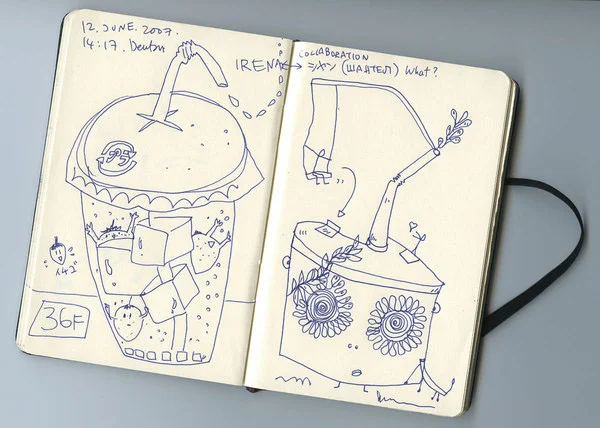 12. JUNE. 2007.
14:17. Dentsu
COLLABORATION
IRENA ↔ (ШАНТЕЛ) What?
"x42"
36F